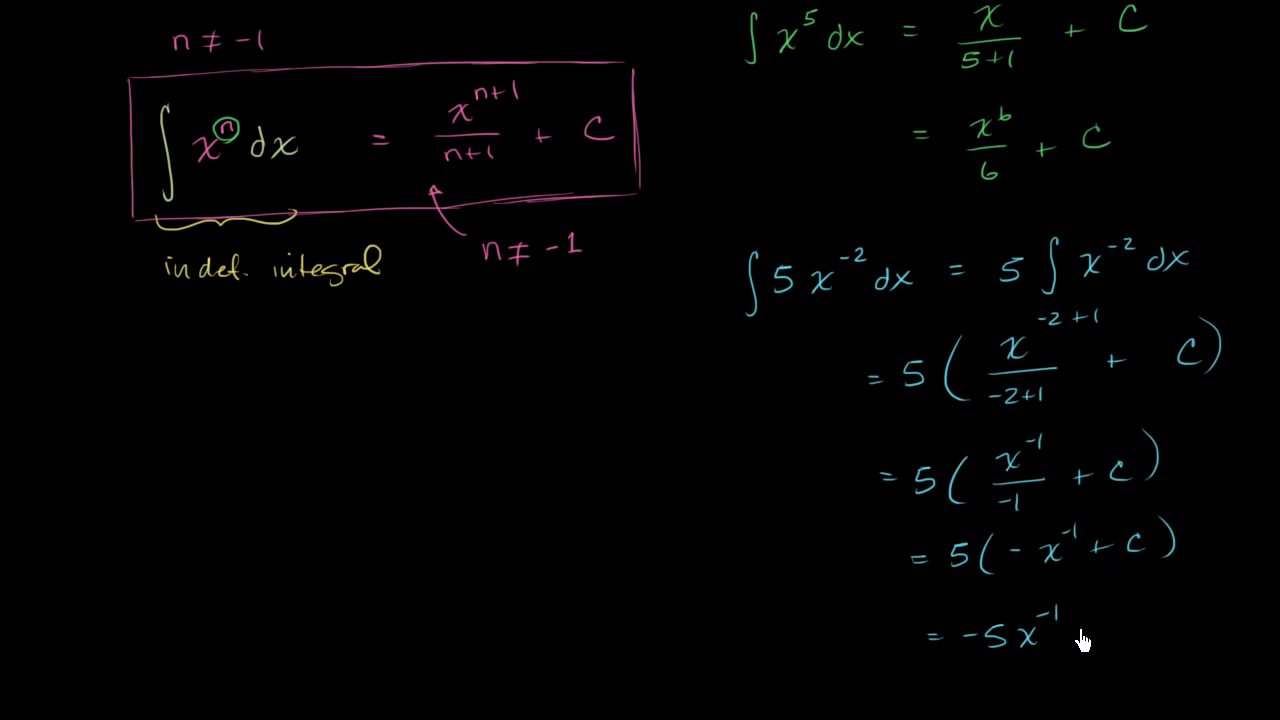 n ≠ -1
∫ xⁿ dx = xⁿ⁺¹/(n+1) + C
n ≠ -1
indef. integral
∫ x⁵ dx = x/(5+1) + C
= x⁶/6 + C
∫ 5 x⁻² dx = 5 ∫ x⁻² dx
= 5 ( x⁻²⁺¹/(-2+1) + C )
= 5 ( x⁻¹/-1 + C )
= 5 ( - x⁻¹ + C )
= -5 x⁻¹